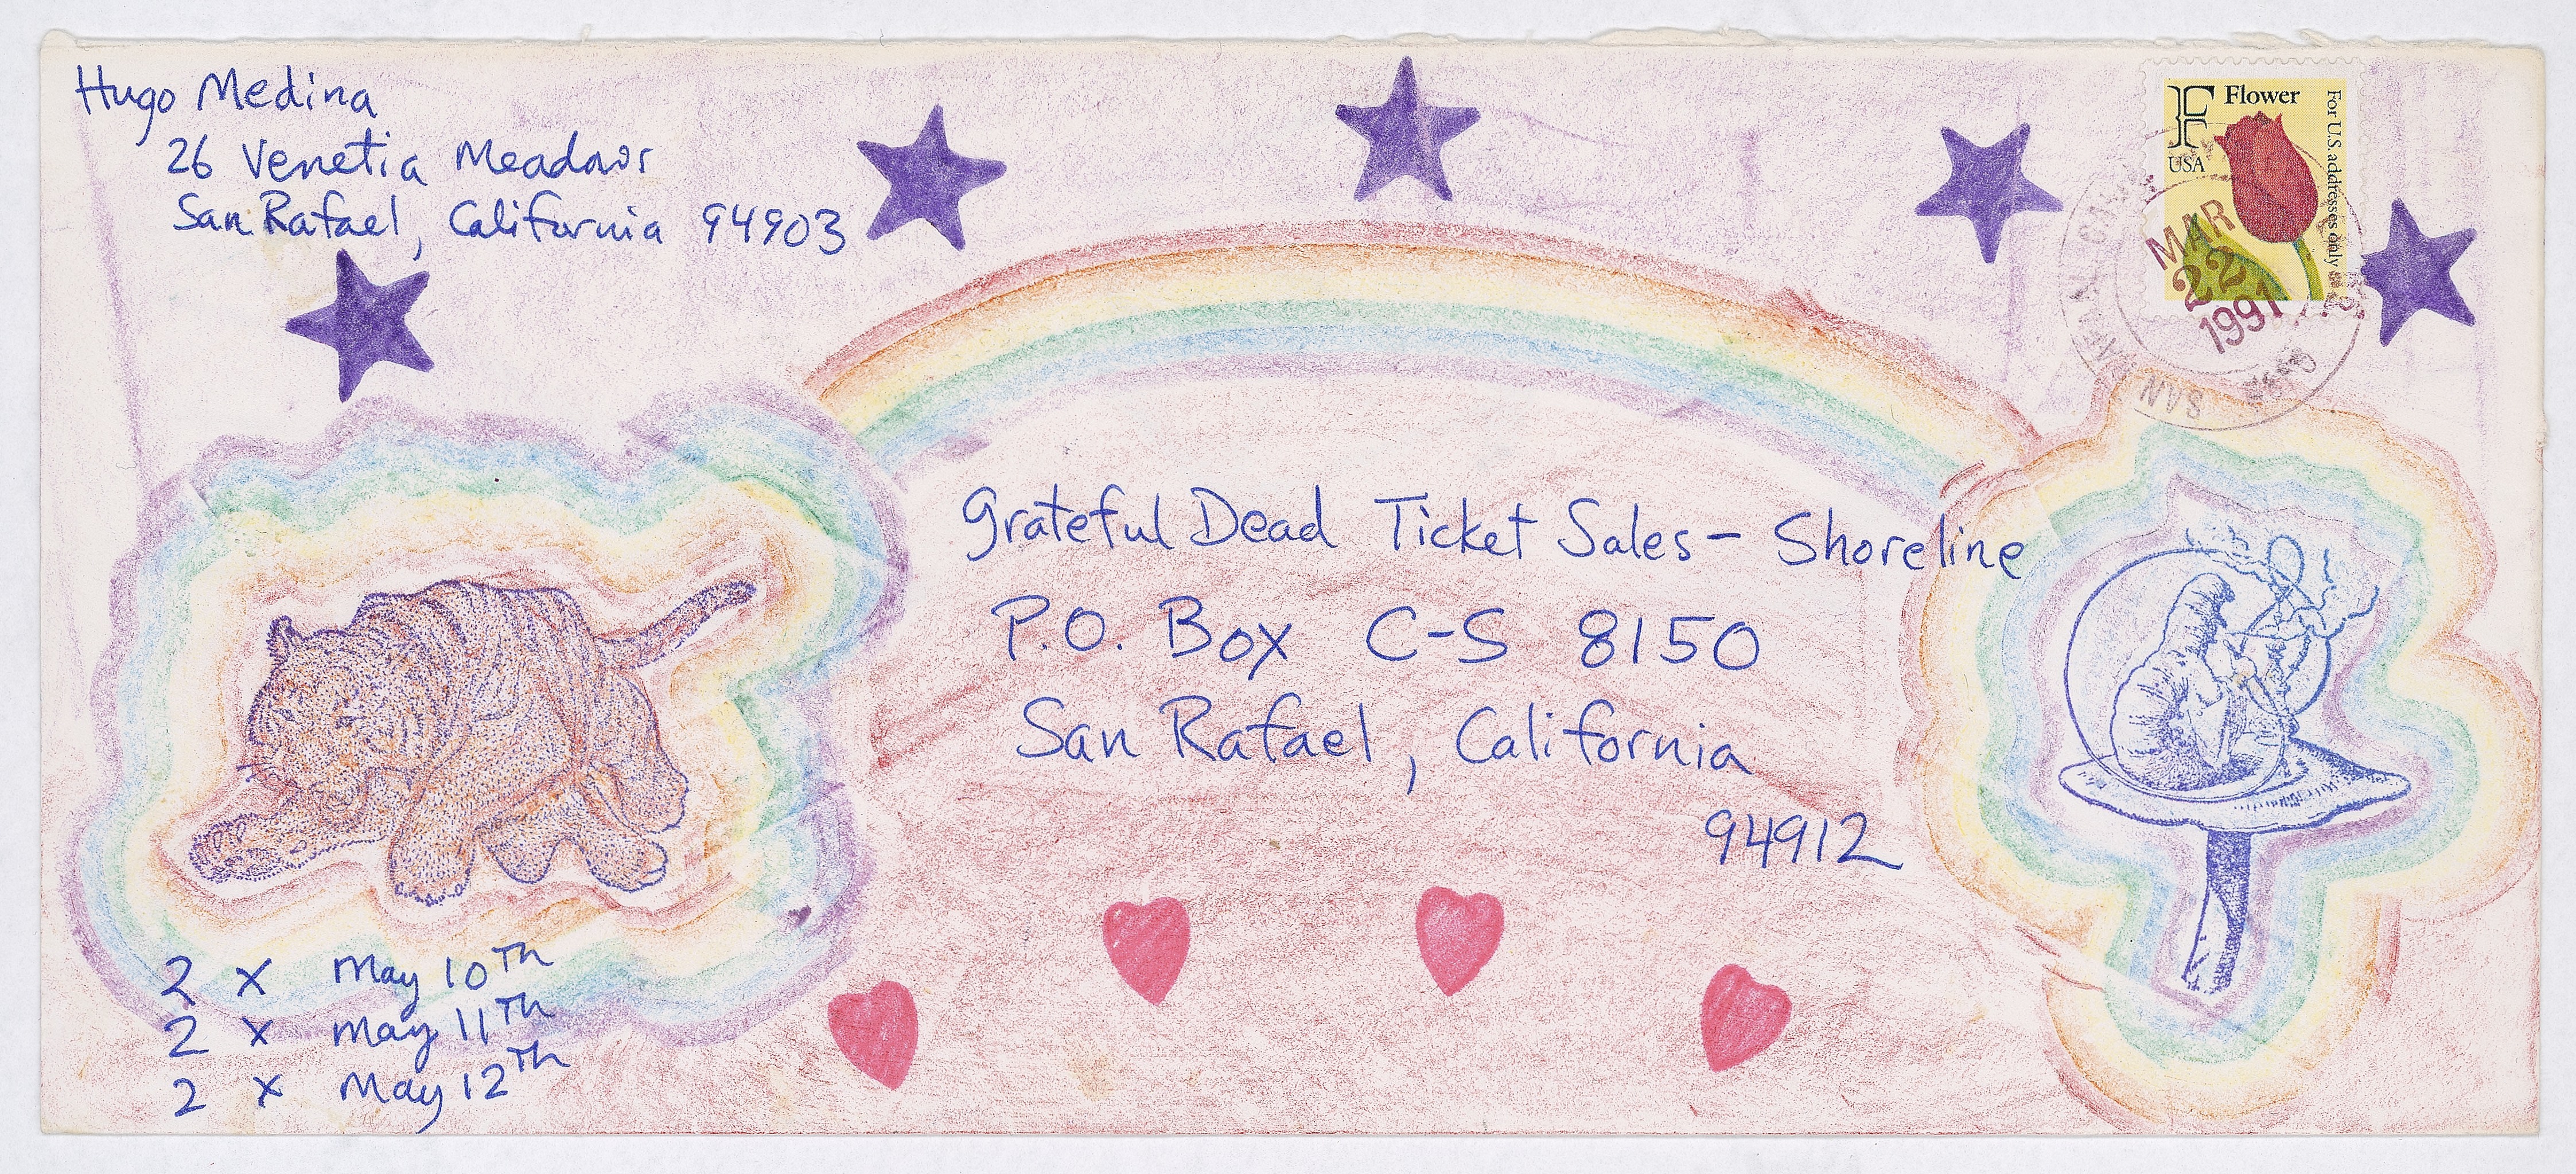 Hugo Medina
26 Venetia Meadows
San Rafael, California 94903
F Flower
USA
For U.S. addresses only
MAR
22
1991
SAN RAFAEL CA
Grateful Dead Ticket Sales - Shoreline
P.O. Box C-S 8150
San Rafael, California
94912
2 x May 10Th
2 x May 11Th
2 x May 12Th